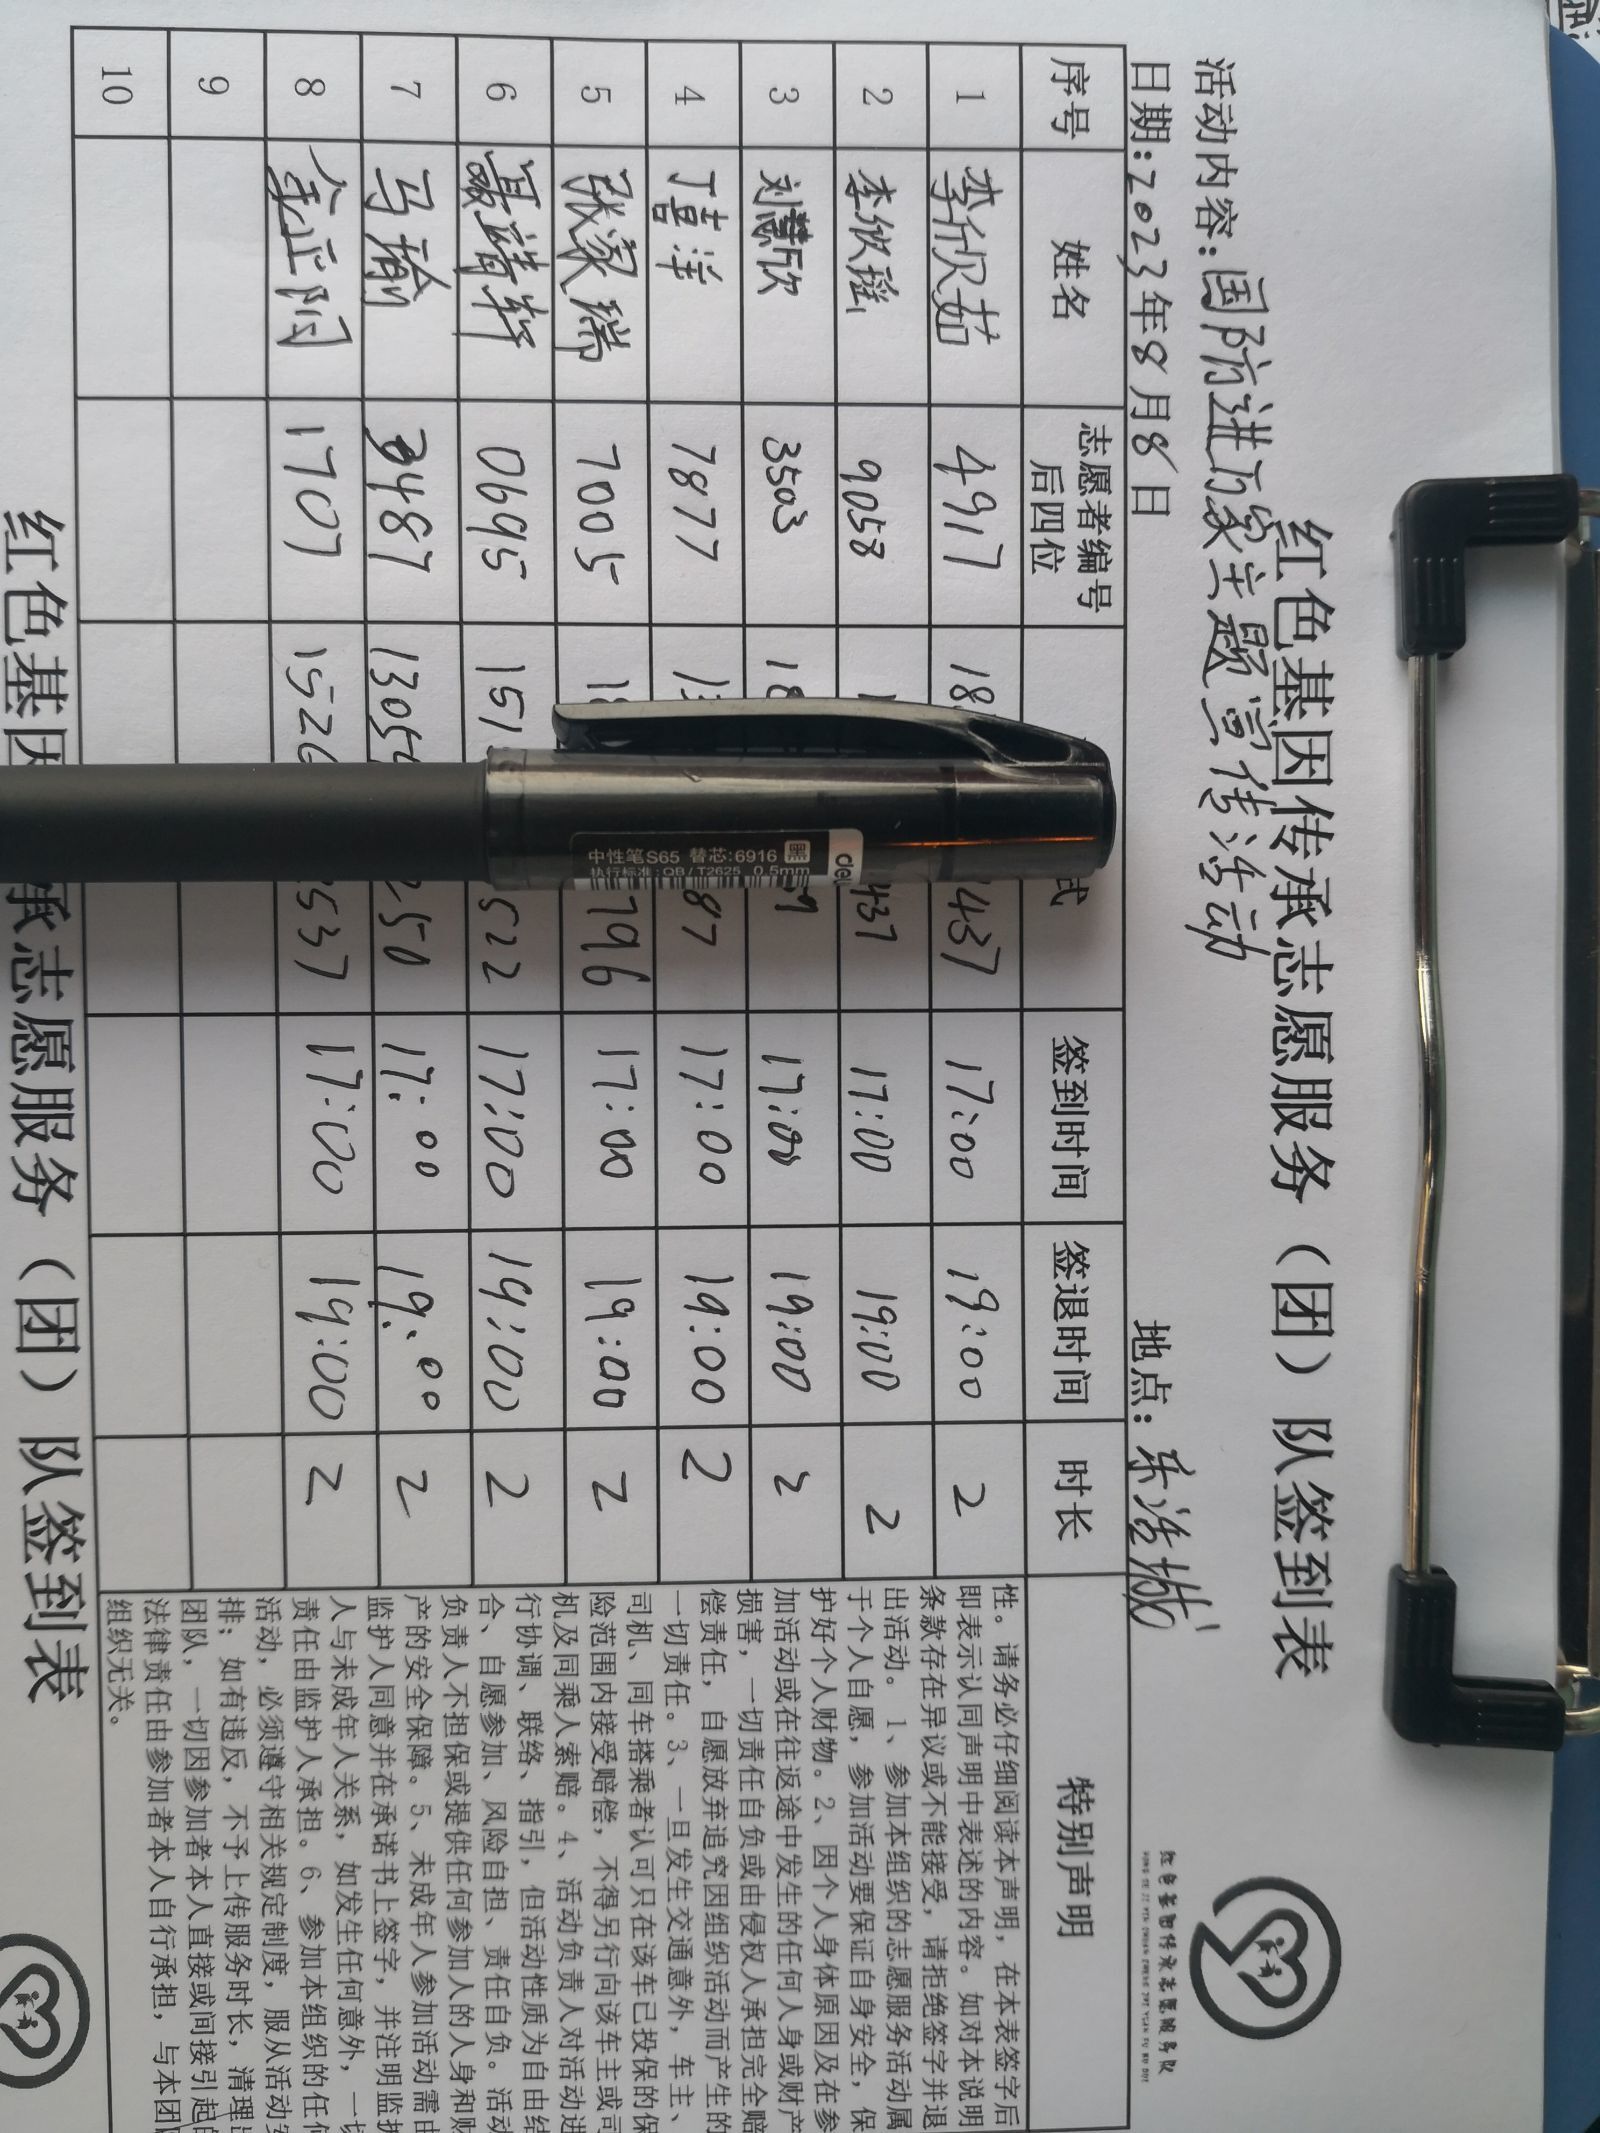 红色基因传承志愿服务（团）队签到表
活动内容：国防进万家主题宣传活动
日期：2023年8月8日 地点：
序号 姓名 志愿者编号后四位 式 签到时间 签退时间 时长 特别声明
1 李欣茹 4917 18 437 17:00 19:00 2
2 李欣瑶 9058 1 437 17:00 19:00 2
3 刘慧欣 3503 18 9 17:00 19:00 2
4 丁喜洋 7877 13 87 17:00 19:00 2
5 张梁瑞 7005 18 796 17:00 19:00 2
6 聂靖轩 0695 151 522 17:00 19:00 2
7 马瑜 3487 1305 250 17:00 19:00 2
8 1707 1526 537 17:00 19:00 2
9
10
性。请务必仔细阅读本声明，在本表签字后
即表示认同声明中表述的内容。如对本说明
条款存在异议或不能接受，请拒绝签字并退
出活动。1、参加本组织的志愿服务活动属
于个人自愿，参加活动要保证自身安全，保
护好个人财物。2、因个人身体原因及在参
加活动或在往返途中发生的任何人身或财产
损害，一切责任自负或由侵权人承担完全赔
偿责任，自愿放弃追究因组织活动而产生的
一切责任。3、一旦发生交通意外，车主、
司机、同车搭乘者认可只在该车已投保的保
险范围内接受赔偿，不得另行向该车主或司
机及同乘人索赔。4、活动负责人对活动进
行协调、联络、指引，但活动性质为自由结
合、自愿参加、风险自担、责任自负。活动
负责人不担保或提供任何参加人的人身和财
产的安全保障。5、未成年人参加活动需由
监护人同意并在承诺书上签字，并注明监护
人与未成年人关系，如发生任何意外，一切
责任由监护人承担。6、参加本组织的任何
活动，必须遵守相关规定制度，服从活动安
排；如有违反，不予上传服务时长，清理出
团队，一切因参加者本人直接或间接引起的
法律责任由参加者本人自行承担，与本团队
组织无关。
红色基因传承志愿服务队
deli
中性笔S65 替芯:6916 黑
执行标准:QB/T2625 0.5mm
红色基因 承志愿服务（团）队签到表